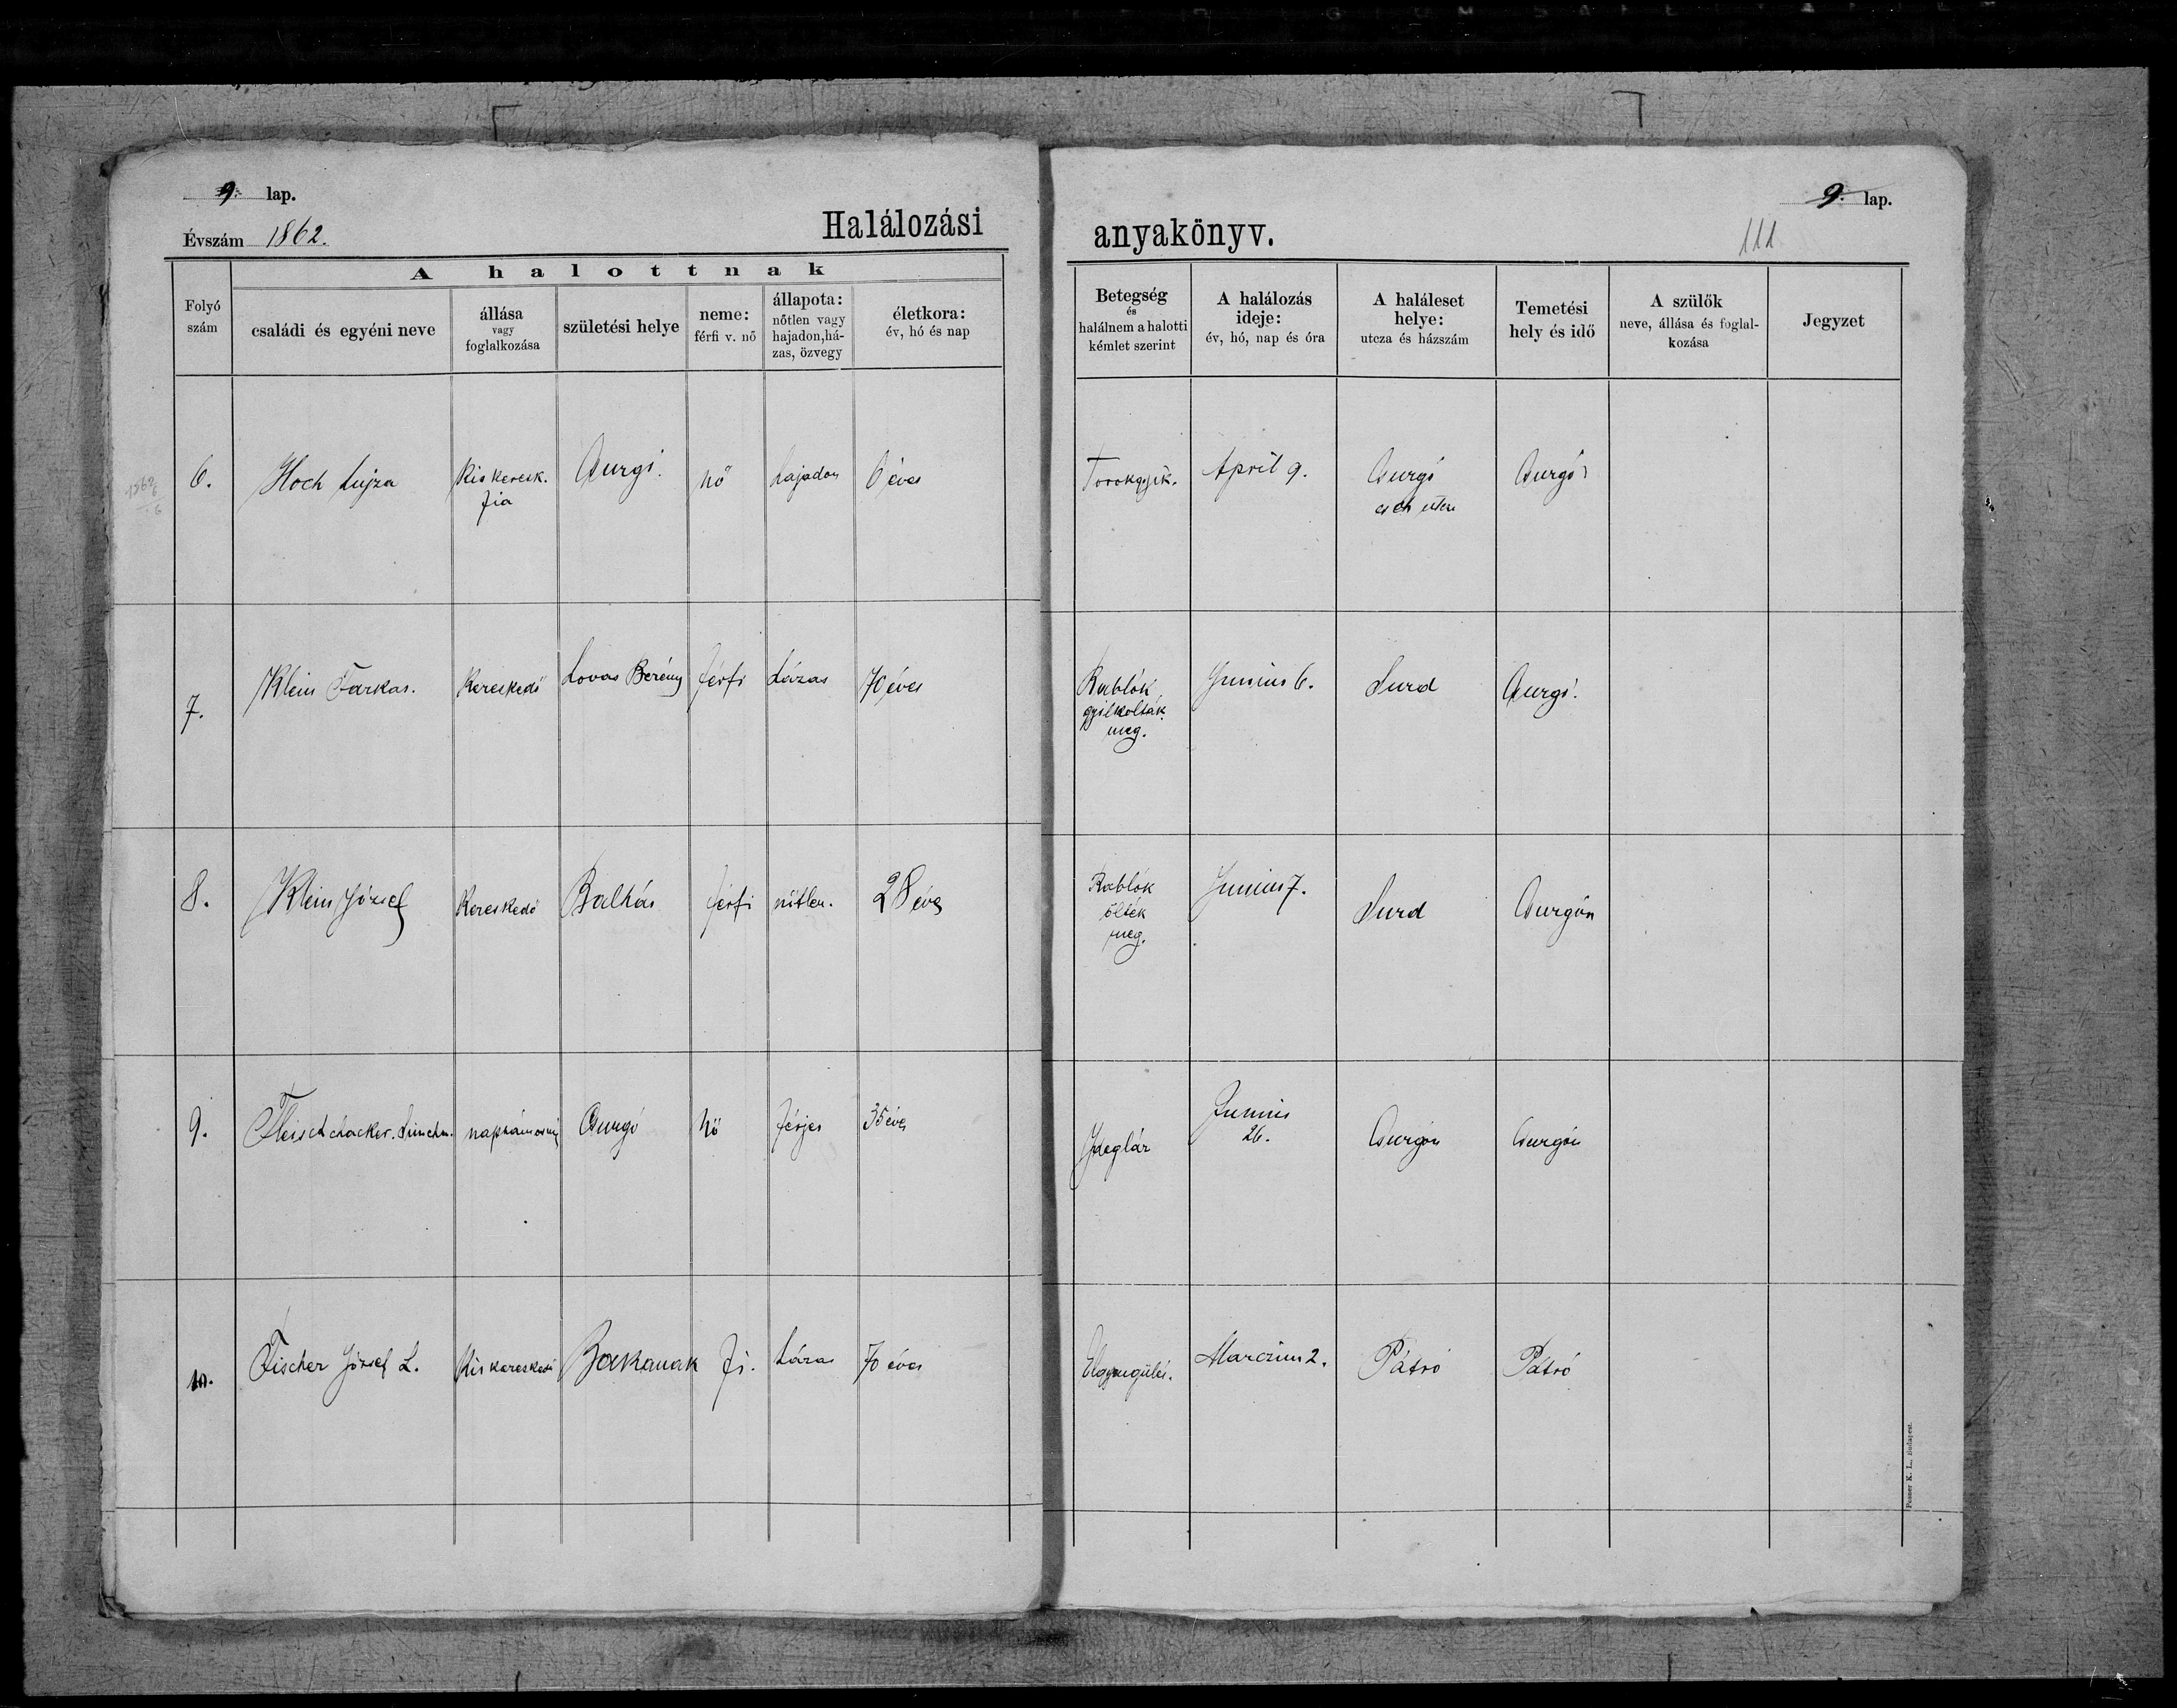 9. lap.
Évszám 1862.
Halálozási
A halottnak
Folyó szám
családi és egyéni neve
állása vagy foglalkozása
születési helye
neme: férfi v. nő
állapota: nőtlen vagy hajadon, házas, özvegy
életkora: év, hó és nap
6. Hoch Lujza Kiskeresk. fia Csurgó. nő hajadon 6 éves
7. Klein Farkas. Kereskedő Lovas Berény férfi házas 70 éves
8. Klein József Kereskedő férfi nőtlen. 28 éves
9. Fleischhacker. Csurgó nő férjes 35 éves
10. Fischer József L. Kiskereskedő fi. házas 70 éves
9. lap.
111
anyakönyv.
Betegség és halálnem a halotti kémlet szerint
A halálozás ideje: év, hó, nap és óra
A haláleset helye: utcza és házszám
Temetési hely és idő
A szülők neve, állása és foglalkozása
Jegyzet
Torokgyík. April 9. Csurgó Csurgó
Rablók gyilkolták meg. Junius 6. Surd Csurgó.
Rablók ölték meg. Junius 7. Surd Csurgón
Junius 26. Csurgón Csurgón
Elgyengülés. Marczius 2. Pátró Pátró
Posner K. L., Budapest.